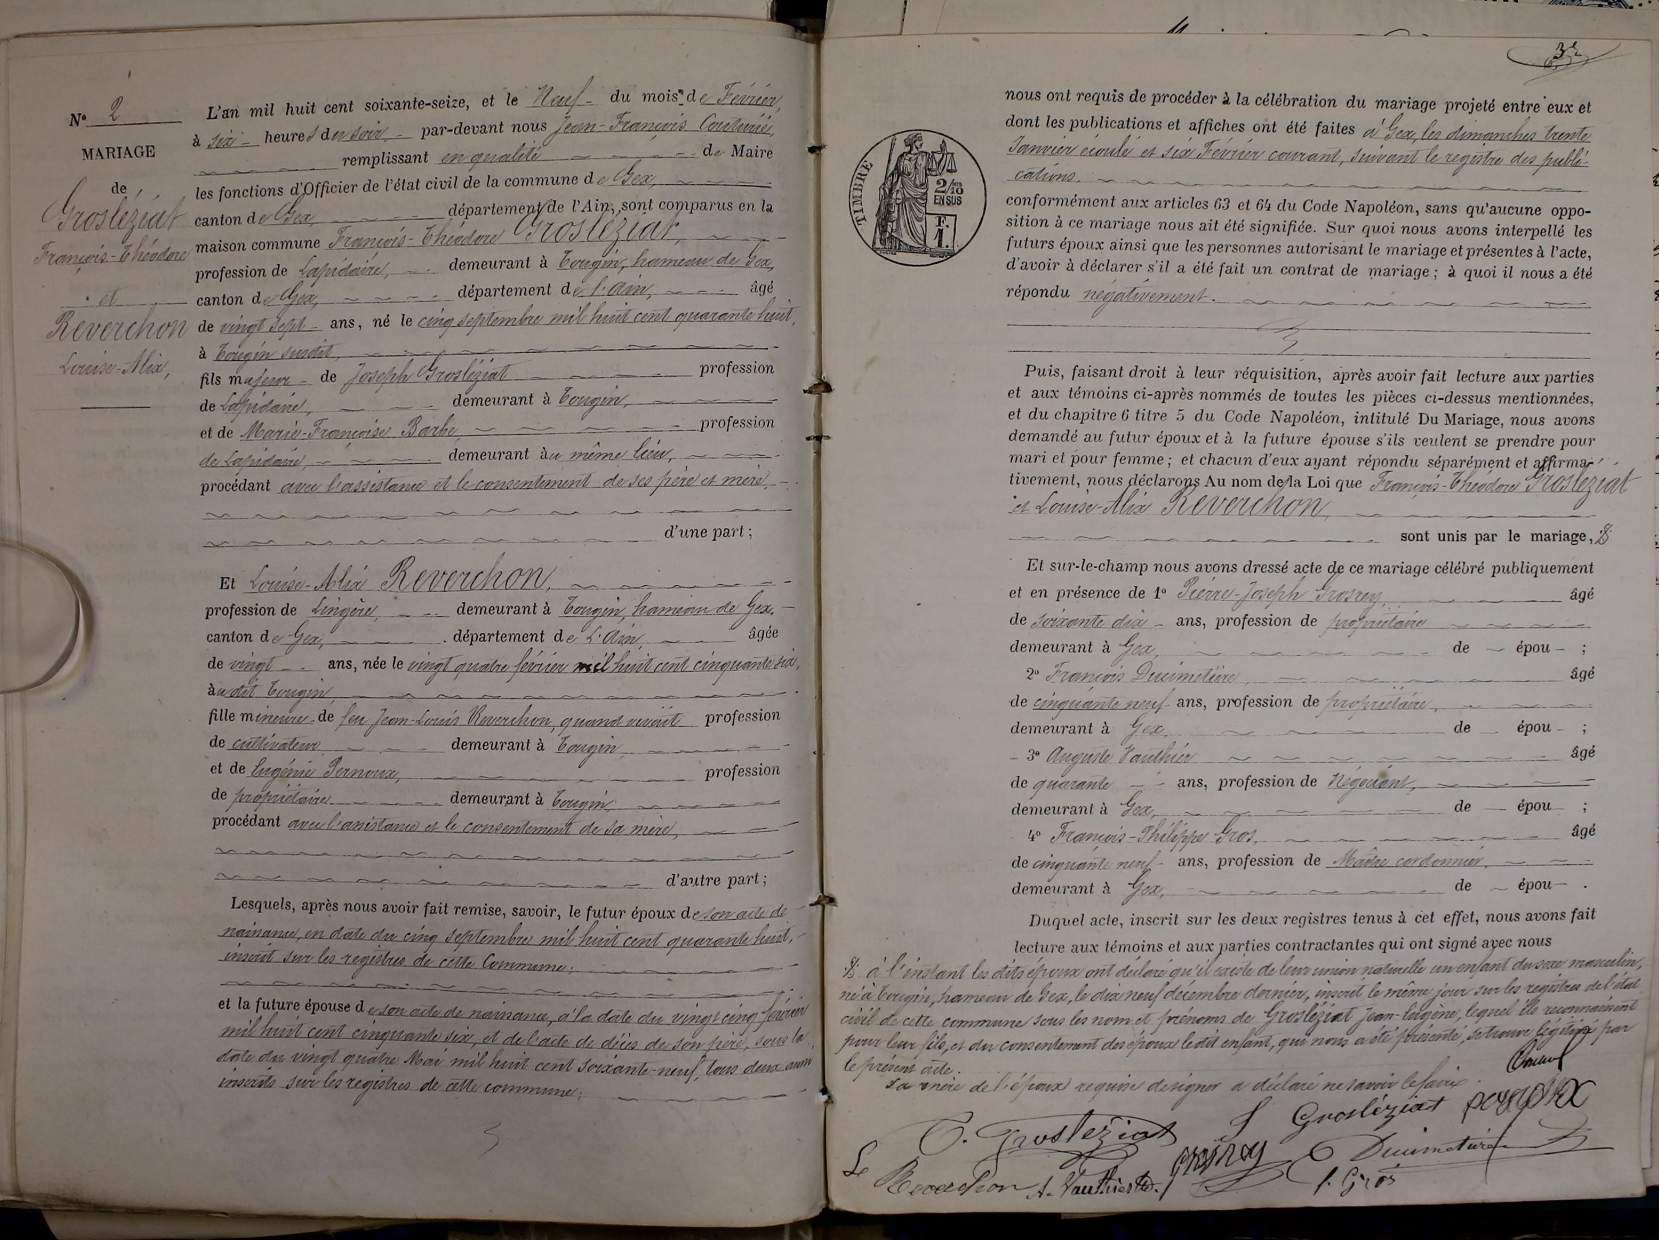 N° 2
MARIAGE
de
Grosléziat
François-Théodore
et
Reverchon
Louise-Alix,
L'an mil huit cent soixante-seize, et le Neuf du mois de Février,
à six heures du soir par-devant nous Jean-François
remplissant en qualité de Maire
les fonctions d'Officier de l'état civil de la commune de Gex,
canton de Gex, département de l'Ain, sont comparus en la
maison commune François-Théodore Grosléziat,
profession de Lapidaire, demeurant à Tougin, hameau de Gex,
canton de Gex, département de l'Ain, âgé
de vingt sept ans, né le cinq septembre mil huit cent quarante huit,
à Tougin susdit,
fils majeur de Joseph Grosléziat profession
de Lapidaire, demeurant à Tougin,
et de Marie-Françoise Barbe, profession
de Lapidaire, demeurant au même lieu,
procédant avec l'assistance et le consentement de ses père et mère,
d'une part;
Et Louise-Alix Reverchon,
profession de Lingère, demeurant à Tougin, hameau de Gex,
canton de Gex, département de L'Ain, âgée
de vingt ans, née le vingt quatre février mil huit cent cinquante six,
au dit Tougin
fille mineure de feu Jean-Louis Reverchon, quand vivait profession
de cultivateur demeurant à Tougin
et de Eugénie Pernoux, profession
de propriétaire demeurant à Tougin
procédant avec l'assistance et le consentement de sa mère,
d'autre part;
Lesquels, après nous avoir fait remise, savoir, le futur époux de son acte de
naissance, en date du cinq septembre mil huit cent quarante huit,
inscrit sur les registres de cette Commune;
et la future épouse de son acte de naissance, à la date du vingt cinq février
mil huit cent cinquante six, et de l'acte de décès de son père, sous la
date du vingt quatre Mai mil huit cent soixante-neuf, tous deux aussi
inscrits sur les registres de cette commune;
32
TIMBRE
2/10
EN SUS
F.
1.
nous ont requis de procéder à la célébration du mariage projeté entre eux et
dont les publications et affiches ont été faites à Gex, les dimanches trente
Janvier écoulé et six Février courant, suivant le registre des publi-
cations.
conformément aux articles 63 et 64 du Code Napoléon, sans qu'aucune oppo-
sition à ce mariage nous ait été signifiée. Sur quoi nous avons interpellé les
futurs époux ainsi que les personnes autorisant le mariage et présentes à l'acte,
d'avoir à déclarer s'il a été fait un contrat de mariage; à quoi il nous a été
répondu négativement.
Puis, faisant droit à leur réquisition, après avoir fait lecture aux parties
et aux témoins ci-après nommés de toutes les pièces ci-dessus mentionnées,
et du chapitre 6 titre 5 du Code Napoléon, intitulé Du Mariage, nous avons
demandé au futur époux et à la future épouse s'ils veulent se prendre pour
mari et pour femme; et chacun d'eux ayant répondu séparément et affirma-
tivement, nous déclarons Au nom de la Loi que François-Théodore Grosléziat
et Louise-Alix Reverchon,
sont unis par le mariage,
Et sur-le-champ nous avons dressé acte de ce mariage célébré publiquement
et en présence de 1° Pierre-Joseph Grosrey, âgé
de soixante dix ans, profession de propriétaire
demeurant à Gex, de épou ;
2° François Ducimetière, âgé
de cinquante neuf ans, profession de propriétaire,
demeurant à Gex, de épou ;
3° Auguste Vauthier âgé
de quarante ans, profession de Négociant,
demeurant à Gex, de épou ;
4° François-Philippe Gros, âgé
de cinquante neuf ans, profession de Maître cordonnier,
demeurant à Gex, de épou .
Duquel acte, inscrit sur les deux registres tenus à cet effet, nous avons fait
lecture aux témoins et aux parties contractantes qui ont signé avec nous
à l'instant les dits époux ont déclaré qu'il existe de leur union naturelle un enfant du sexe masculin,
né à Tougin, hameau de Gex, le dix neuf décembre dernier, inscrit le même jour sur les registres de l'état
civil de cette commune sous les nom et prénoms de Grosléziat Jean-Eugène, lequel ils reconnaissent
pour leur fils, et du consentement des époux le dit enfant, qui nous a été présenté, se trouve légitimé par
le présent acte.
La mère de l'époux requise de signer a déclaré ne savoir le faire.
T. Grosléziat
J Grosléziat
pernoux
L.
Reverchon
A. Vauthier
Grosrey
Ducimetière
f. Gros